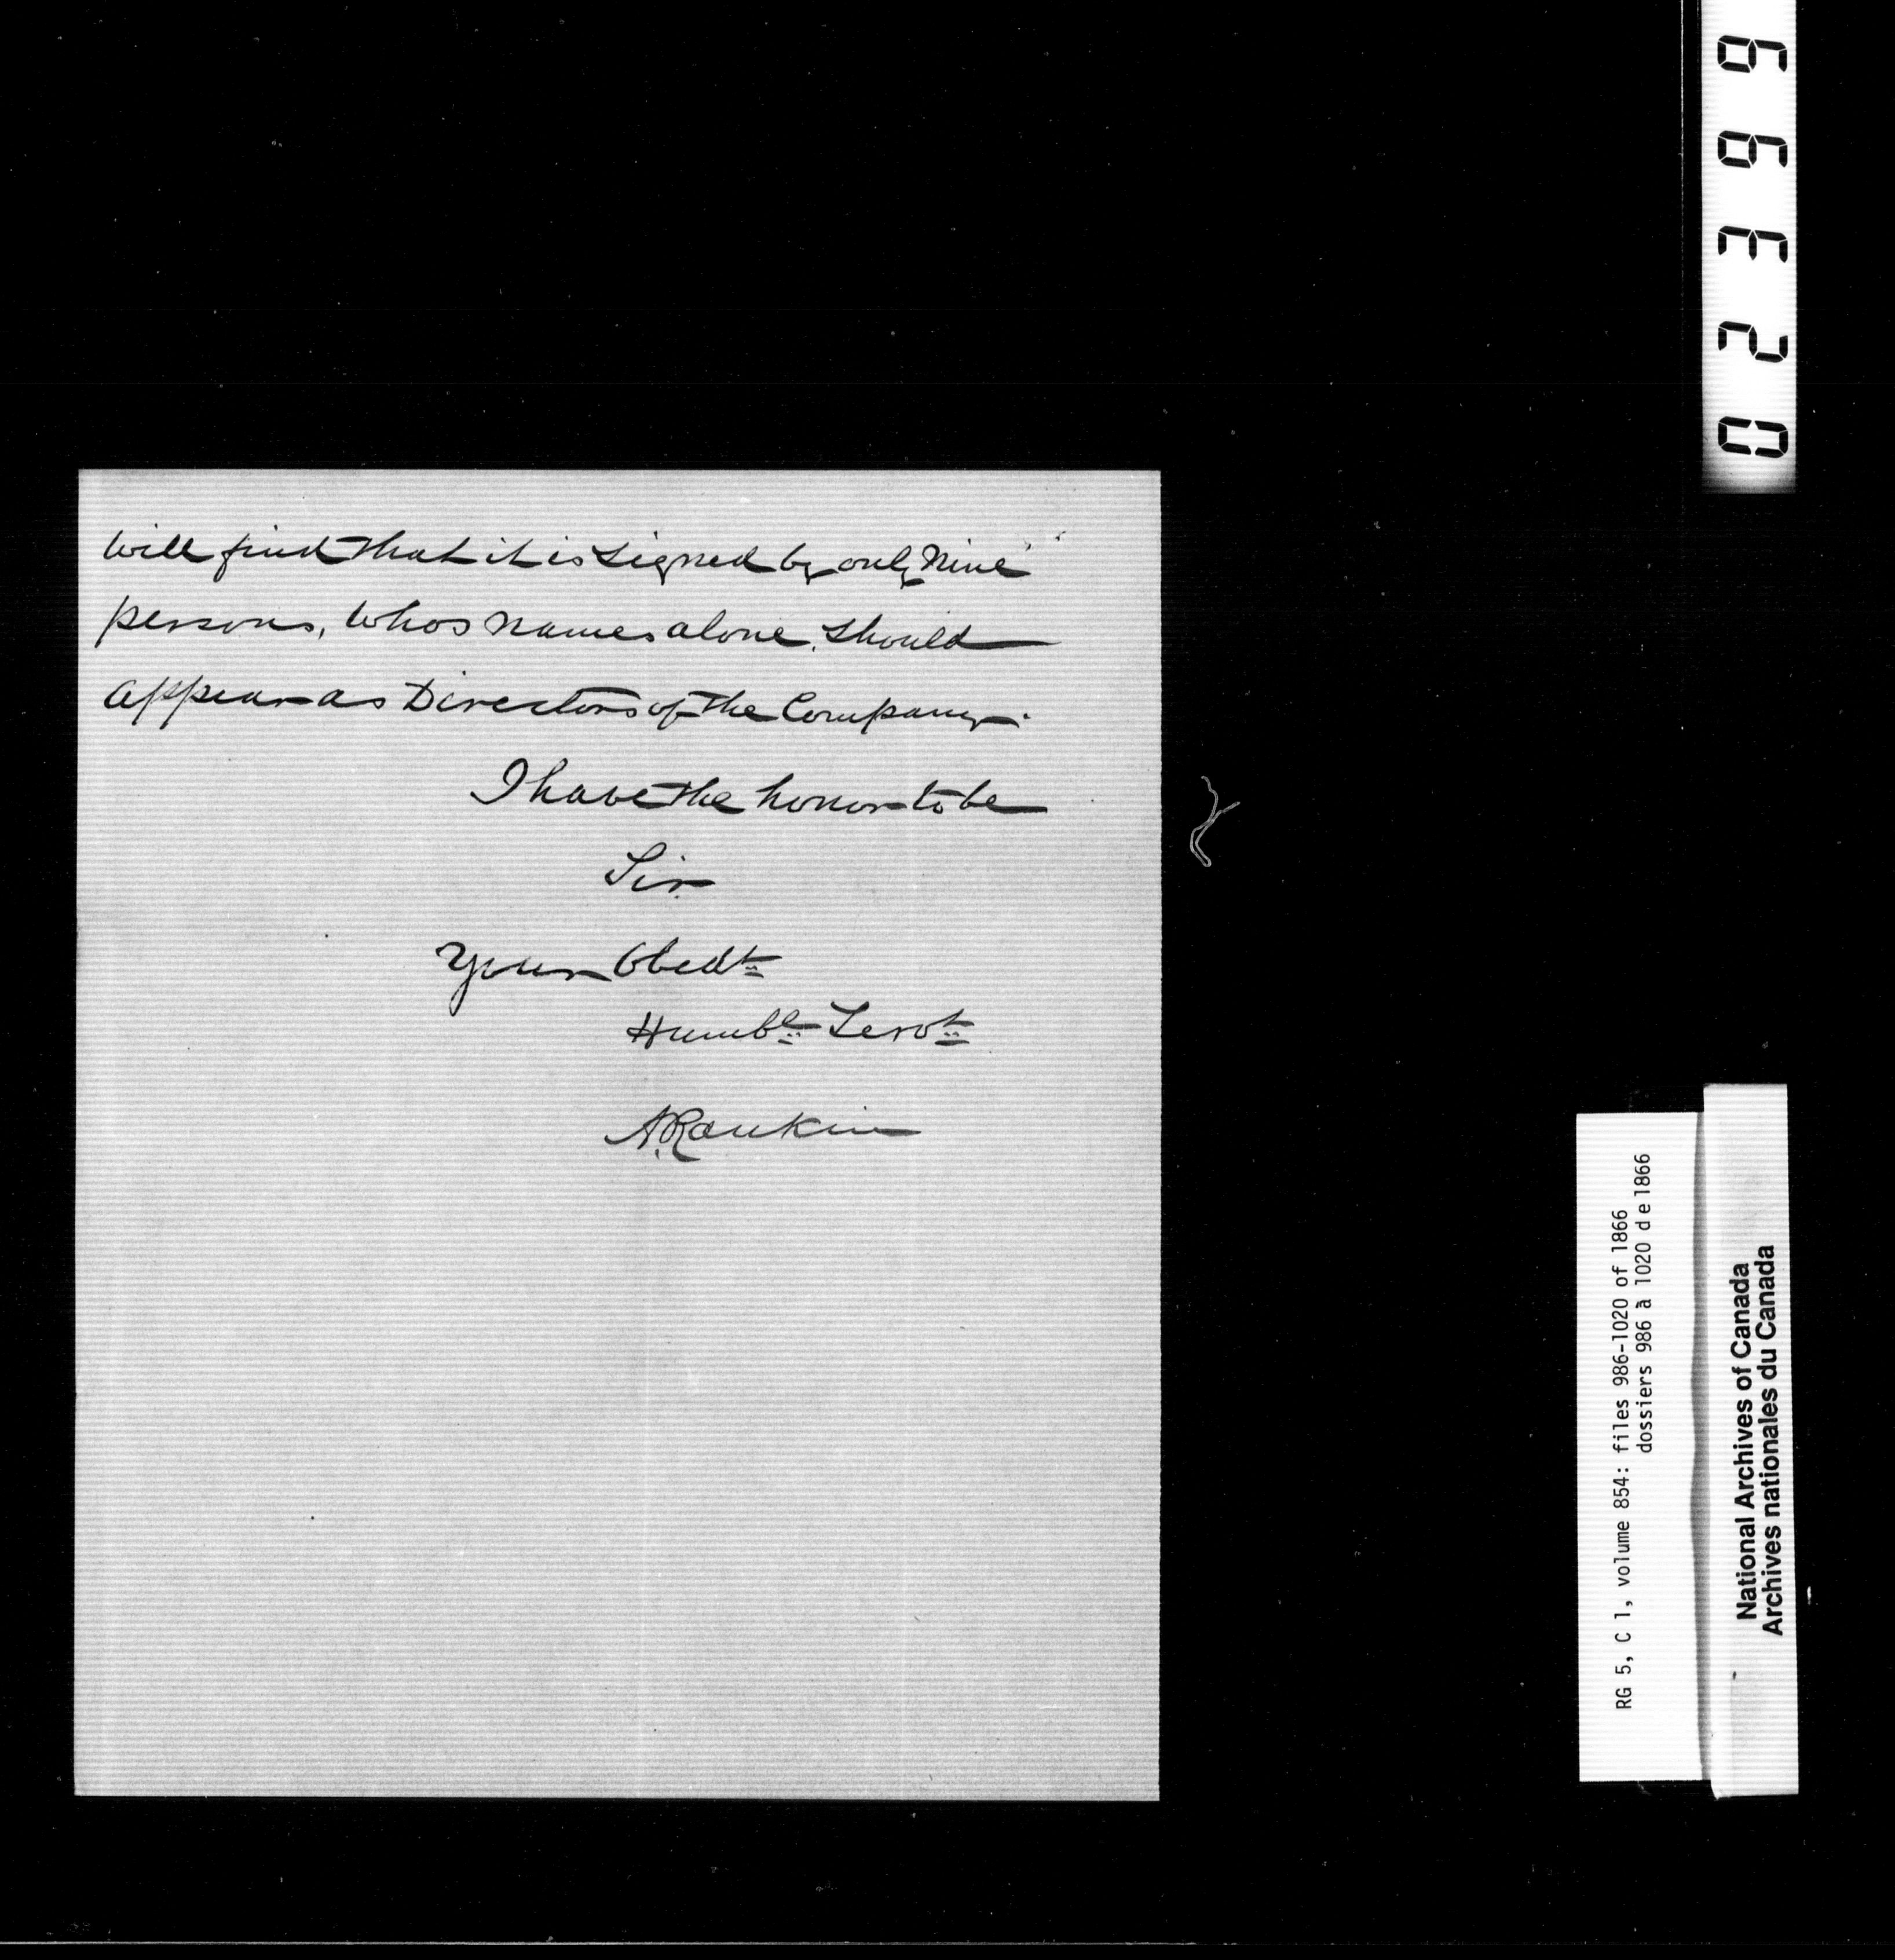 will find that it is signed by only nine
persons, whos names alone, should
appear as Directors of the Company.
I have the honor to be
Sir.
Your Obedt
Humble Servt
A. Rankin
02399
RG 5, C 1, volume 854: files 986-1020 of 1866
dossiers 986 à 1020 de 1866
National Archives of Canada
Archives nationales du Canada